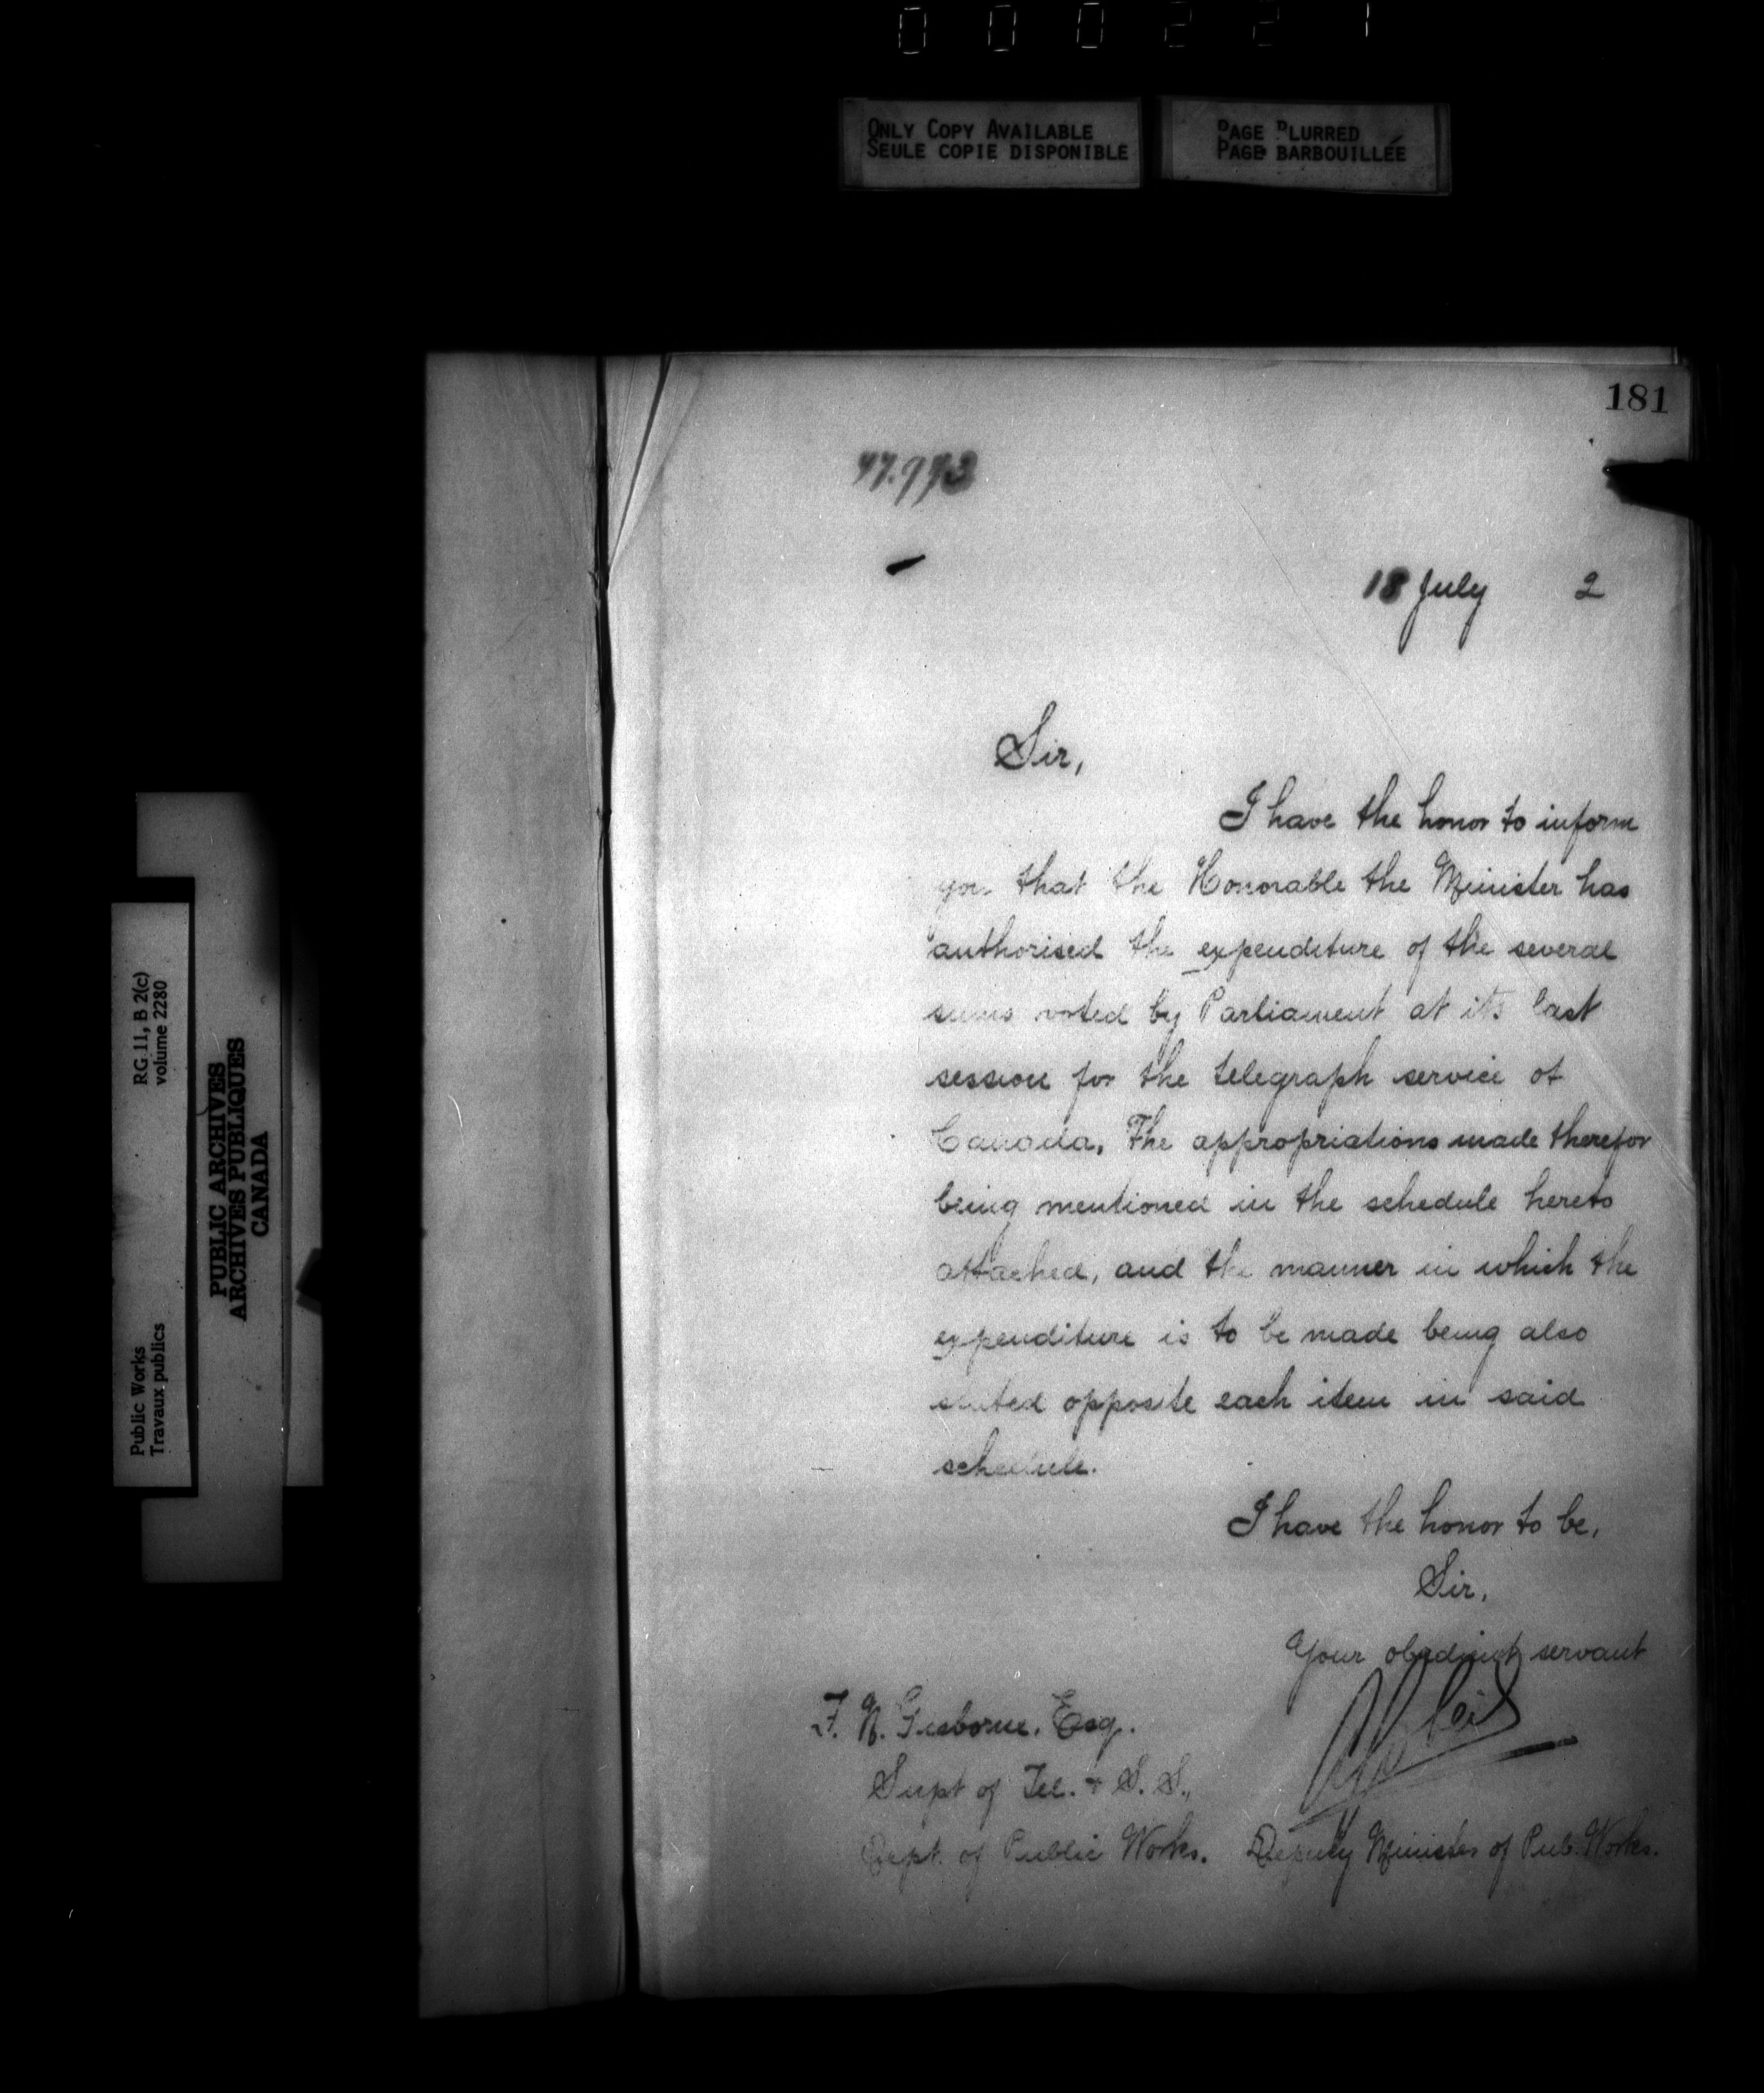 0 0 0 2 2 1
ONLY COPY AVAILABLE
SEULE COPIE DISPONIBLE
PAGE BLURRED
PAGE BARBOUILLÉE
181
18 July 2
Sir,
I have the honor to inform
you that the Honorable the Minister has
authorised the expenditure of the several
sums voted by Parliament at its last
session for the telegraph service of
Canada, The appropriations made therefor
being mentioned in the schedule hereto
attached, and the manner in which the
expenditure is to be made being also
stated opposite each item in said
schedule.
I have the honor to be,
Sir,
Your obedient servant
F. N. Gisborne, Esq.
Supt of Tel. & S. S.,
Dept. of Public Works.
Deputy Minister of Pub. Works.
RG 11, B 2(c)
volume 2280
Public Works
Travaux publics
PUBLIC ARCHIVES
ARCHIVES PUBLIQUES
CANADA